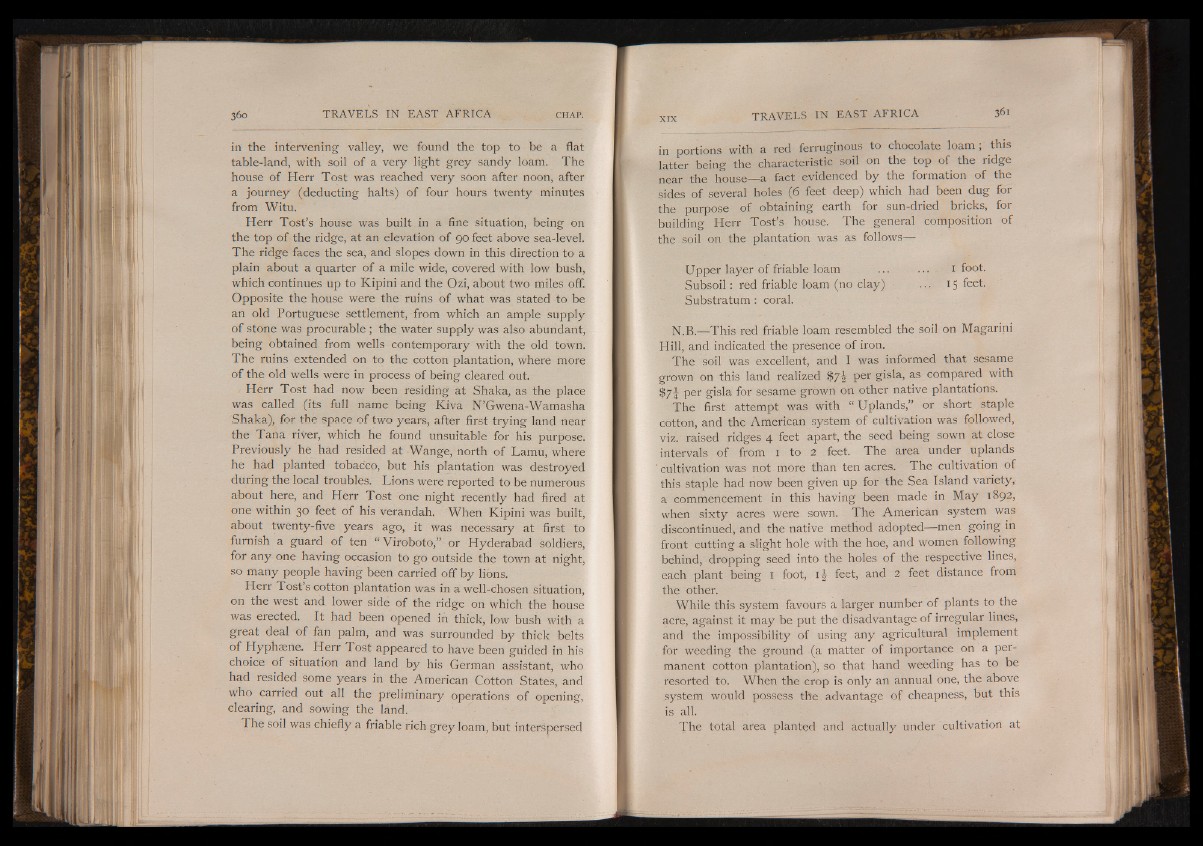 360 TRAVELS IN EAST AFRICA CHAP.
in the intervening valley, we found the top to be a flat
table-land, with soil of a very light grey sandy loam. The
house of Herr Tost was reached very soon after noon, after
a journey (deducting halts) of four hours twenty minutes
from Witu.
Herr Tost's house was built in a fine situation, being on
the top of the ridge, at an elevation of 90 feet above sea-level.
The ridge faces the sea, and slopes down in this direction to a
plain about a quarter of a mile wide, covered with low bush,
which continues up to Kipini and the Ozi, about two miles off.
Opposite the house were the ruins of what was stated to be
an old Portuguese settlement, from which an ample supply
of stone was procurable ; the water supply was also abundant,
being obtained from wells contemporary with the old town.
The ruins extended on to the cotton plantation, where more
of the old wells were in process of being cleared out.
Herr Tost had now been residing at Shaka, as the place
was called (its full name being Kiva N'Gwena-Wamasha
Shaka), for the space of two years, after first trying land near
the Tana river, which he found unsuitable for his purpose.
Previously he had resided at Wange, north of Lamu, where
he had planted tobacco, but his plantation was destroyed
during the local troubles. Lions were reported to be numerous
about here, and Herr Tost one night recently had fired at
one within 30 feet of his verandah. When Kipini was built,
about twenty-five years ago, it was necessary at first to
furnish a guard of ten “ Viroboto,” or Hyderabad soldiers,
for any one having occasion to go outside the town at night,
so many people having been carried off by lions.
Herr Tost's cotton plantation was in a well-chosen situation,
on the west and lower side of the ridge on which the house
was erected. It had been opened in thick, low bush with a
great deal of fan palm, and was surrounded by thick belts
of Hyphæne. Herr Tost appeared to have been guided in his
choice of situation and land by his German assistant, who
had resided some years in the American Cotton States, and
who carried out all the preliminary operations of opening,
clearing, and sowing the land.
The soil was chiefly a friable rich grey loam, but interspersed
XIX TRAVELS IN EAST AFRICA 361
in portions with a red ferruginous to chocolate loam ; this
latter being the characteristic soil on the top of the ridge
near the house—a fact evidenced by the formation of the
sides of several holes (6 feet deep) which had been dug for
the purpose of obtaining earth for sun-dried bricks, for
building Herr Tost's house. The general composition of
the soil on the plantation was as follows—
Upper layer of friable loam ... ... 1 foot.
Subsoil : red friable loam (no clay) ... 15 feet.
Substratum : coral.
N.B.—This red friable loam resembled the soil on Magarini
Hill, and indicated the presence of iron.
The soil was excellent, and I was informed that sesame
grown on this land realized $7½ per gisla, as compared with
$7¼ per gisla for sesame grown on other native plantations.
The first attempt was with “ Uplands,” or short staple
cotton, and the American system of cultivation was followed,
viz. raised ridges 4 feet apart, the seed being sown at close
intervals of from 1 to 2 feet. The area under uplands
cultivation was not more than ten acres. The cultivation of
this staple had now been given up for the Sea Island variety,
a commencement in this having been made in May 1892,
when sixty acres were sown. The American system was
discontinued, and the native method adopted—men going in
front cutting a slight hole with the hoe, and women following
behind, dropping seed into the holes of the respective lines,
each plant being 1 foot, 1½ feet, and 2 feet distance from
the other.
While this system favours a larger number of plants to the
acre, against it may be put the disadvantage of irregular lines,
and the impossibility of using any agricultural implement
for weeding the ground (a matter of importance on a per-
manent cotton plantation), so that hand weeding has to be
resorted to. When the crop is only an annual one, the above
system would possess the advantage of cheapness, but this
is all.
The total area planted and actually under cultivation at